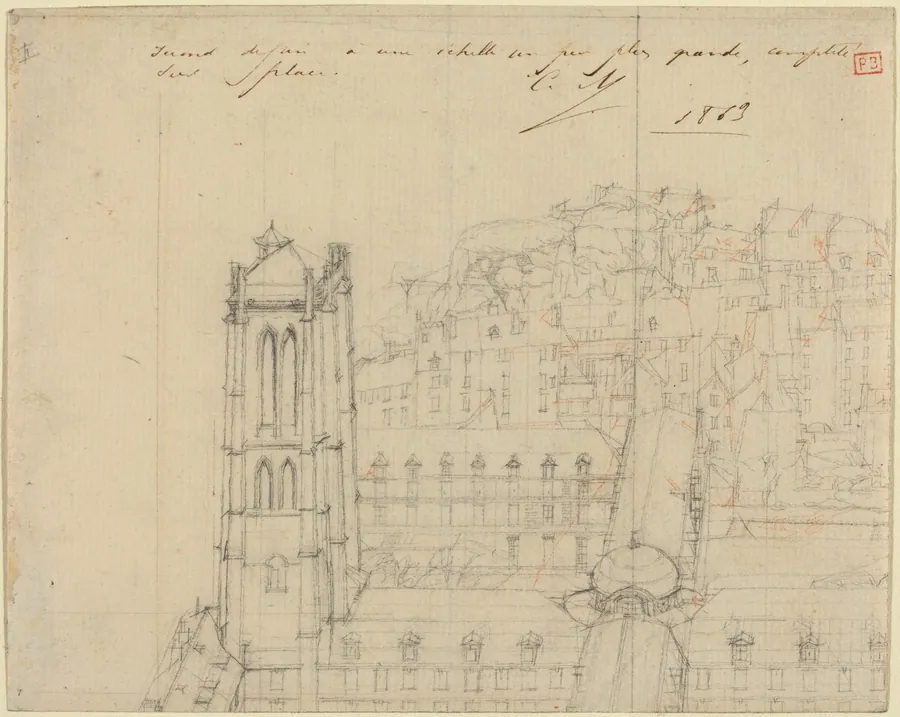 Second dessin à une échelle un peu plus grande, complété
sur place.
C. M
1863
PB
II